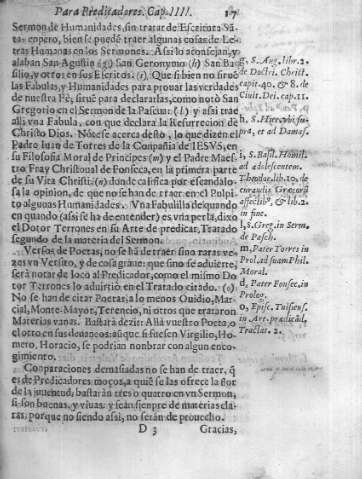 Para Predicadores. Cap. IIII. 27
Sermon de Humanidades, sin tratar de Escritura Sã-
ta: empero, bien se puede tratar algunas cosas de Le-
tras Humanas en los Sermones. Assi lo aconsejan, y
alaban San Agustin (g) San Geronymo (h) San Ba-
silio, y otros en sus Escritos. (i). Que si bien no siruẽ
las Fabulas, y Humanidades para prouar las verdades
de nuestra Fè, siruẽ para declararlas, como notò San
Gregorio en el Sermon de la Pascua: (l) y assi trae
alli vna Fabula, con que declara la Resurreccion de
Christo Dios. Notese acerca desto, lo que dizen el
Padre Iuan de Torres de la Conpañia de IESVS, en
su Filosofia Moral de Principes (m) y el Padre Maes-
tro Fray Christoual de Fonseca, en la primera parte
de su Vita Christi: (n) donde califica por escandalo-
sa la opinion, de que no se han de traer en el Pulpi-
to algunas Humanidades. Vna Fabulilla de quando
en quando (assi se ha de entender) es vna perla, dixo
el Dotor Terrones en su Arte de predicar, Tratado
segundo de la materia del Sermon.
Versos de Poetas, no se hã de traer: sino raras ve-
zes vn Versito, y de cosa graue: que sino se aduierte,
serà notar de loco al Predicador, como el mismo Do-
tor Terrones lo aduirtio en el Tratado citado. (o)
No se han de citar Poetas: a lo menos Ouidio, Mar-
cial, Monte-Mayor, Terencio, ni otros que trataron
Materias vanas. Bastarà dezir: Allà vuestro Poeta, o
el otro en sus donaires: aũque si fuessen Virgilio, Ho-
mero, Horacio, se podrian nonbrar con algun enco-
gimiento.
Conparaciones demasiadas no se han de traer, q̃
es de Predicadores moços, a quiẽ se las ofrece la flor
de la juuentud, bastaràn tres o quatro en vn Sermon,
si son buenas, y viuas. y seàn sienpre de materias cla-
ras, porque no siendo assi, no seràn de prouecho.
D 3 Gracias,
g, S. Aug. lib. 2.
de Doctri. Christ.
capit. 40. & 8. de
Ciuit. Dei cap. 11.
h. S. Hier. vbi su-
pra, et ad Damas.
i, S. Basil. Homil.
ad adolescentem.
Theodor. lib. 10. de
curandis Græcorũ
affectib. & lib. 2.
in fine.
l, S. Greg. in Serm.
de Pasch.
m, Pater Torres in
Prol. ad suam Phil.
Moral.
n, Pater Fonsec. in
Prolog.
o, Episc. Tuisens.
in Art. prædicãd,
Tractat. 2.